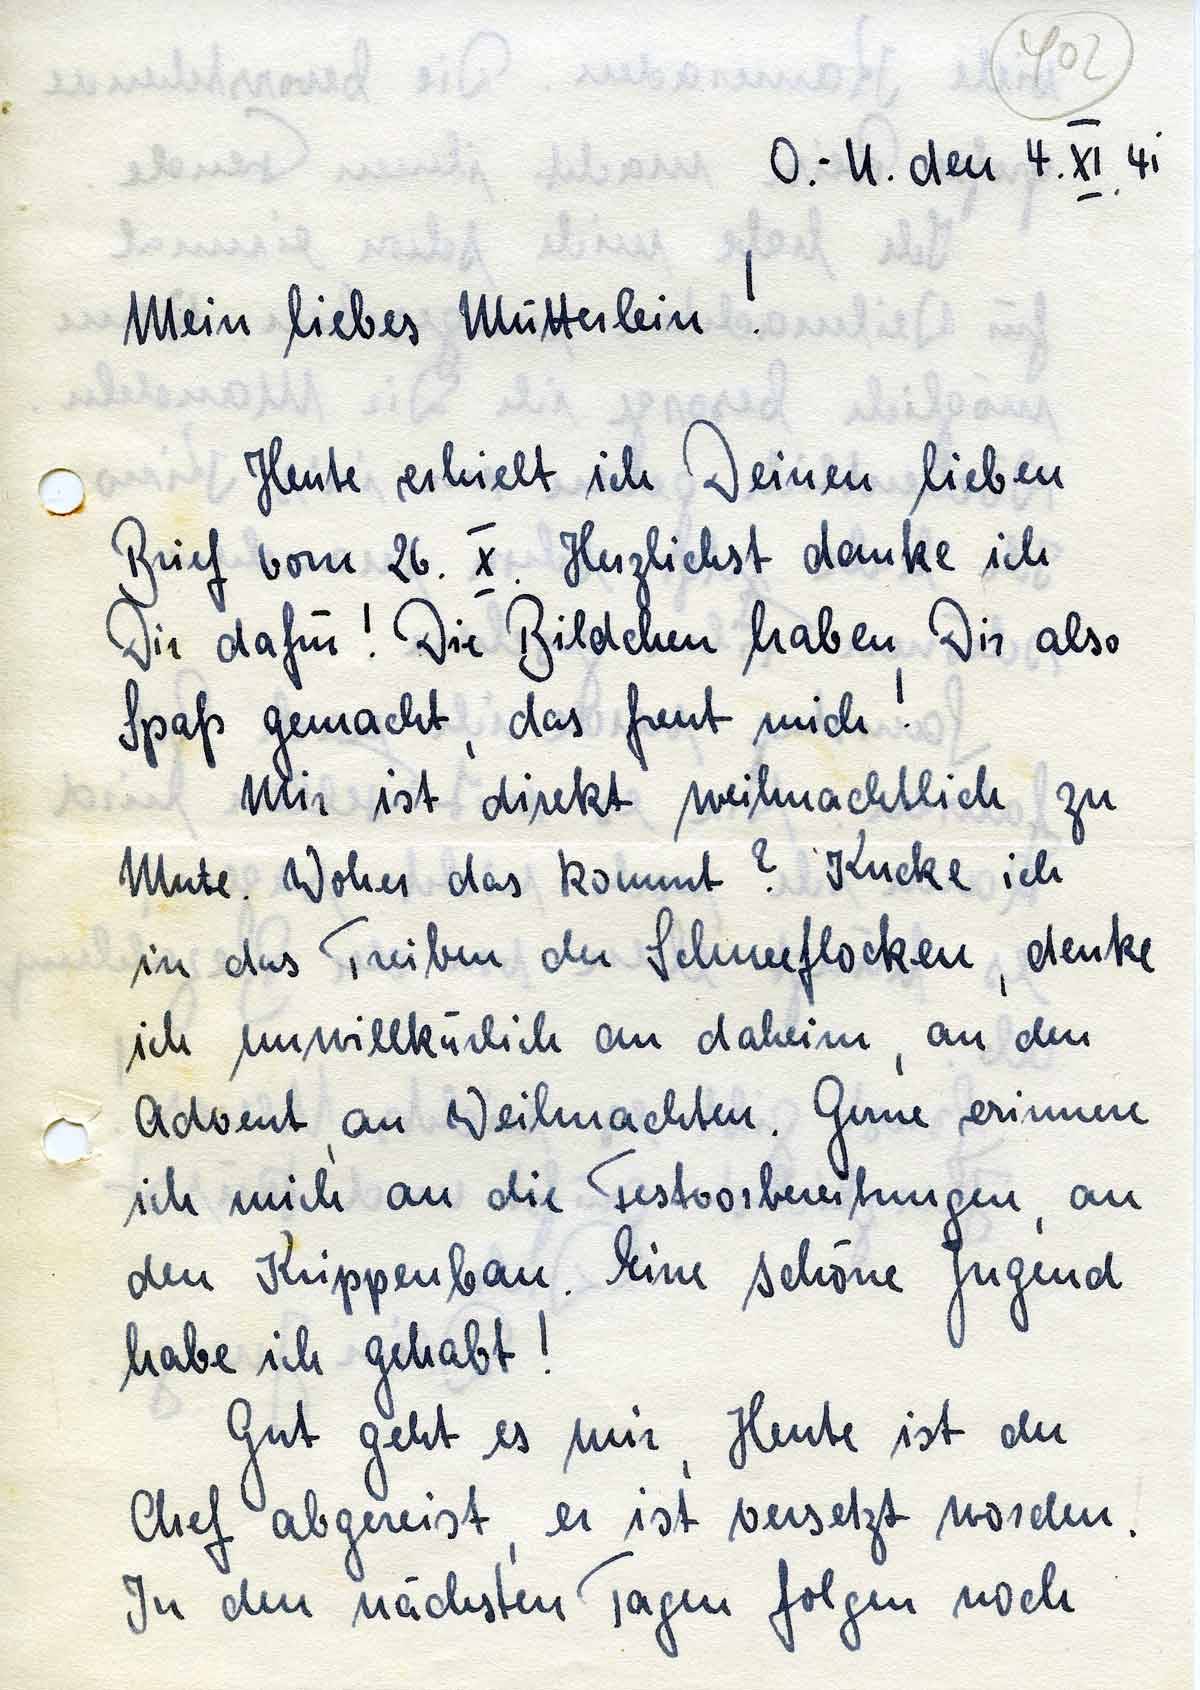 402
O.-U. den 4.XI.41
Mein liebes Mütterlein!
Heute erhielt ich Deinen lieben
Brief vom 26. X. Herzlichst danke ich
Dir dafür! Die Bildchen haben Dir also
Spaß gemacht, das freut mich!
Mir ist direkt weihnachtlich zu
Mute. Woher das kommt? Kucke ich
in das Treiben der Schneeflocken, denke
ich unwillkürlich an daheim, an den
Advent, an Weihnachten. Gerne erinnere
ich mich an die Festvorbereitungen, an
den Krippenbau. Eine schöne Jugend
habe ich gehabt!
Gut geht es mir, Heute ist der
Chef abgereist, er ist versetzt worden.
In den nächsten Tagen folgen noch